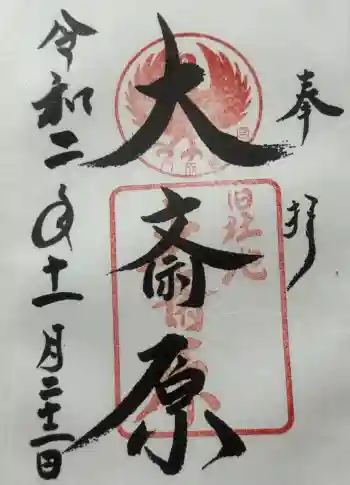 奉拝
大斎原
旧社地
令和二年十一月二十一日